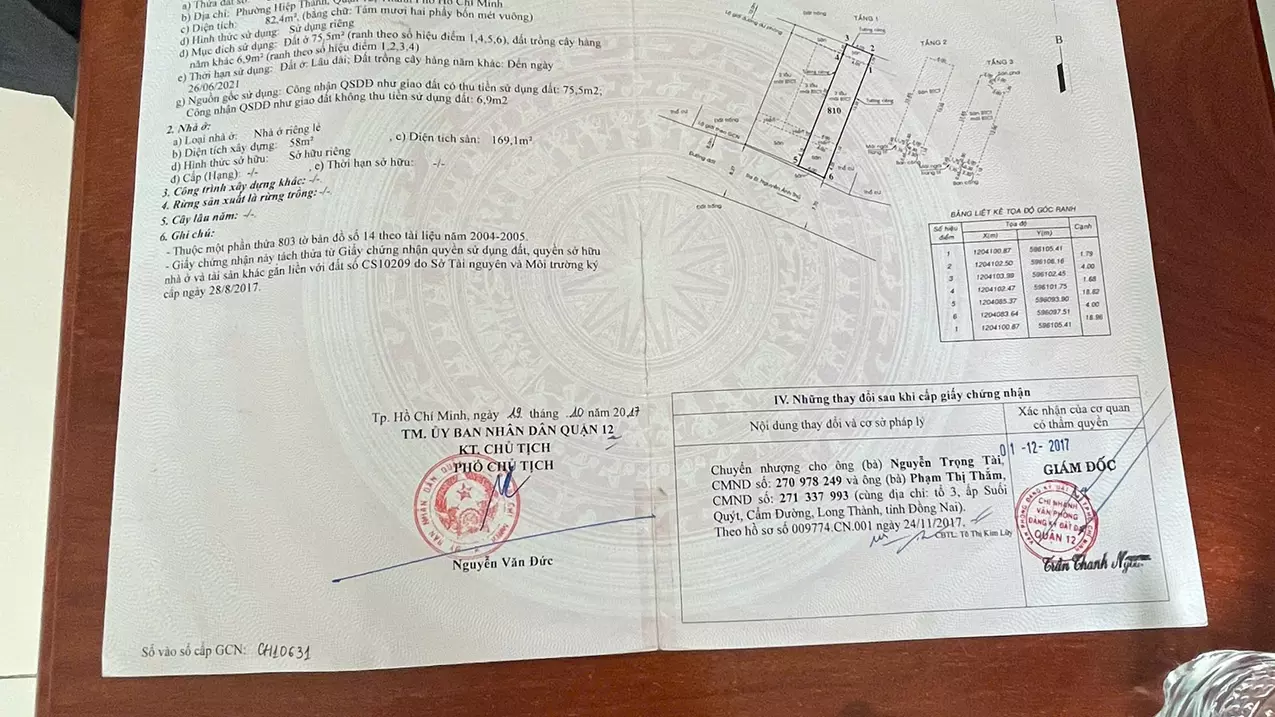 b) Địa chỉ: Phường Hiệp Thành,
c) Diện tích: 82,4m², (bằng chữ: Tám mươi hai phẩy bốn mét vuông)
d) Hình thức sử dụng: Sử dụng riêng
đ) Mục đích sử dụng: Đất ở 75,5m² (ranh theo số hiệu điểm 1,4,5,6), đất trồng cây hàng
năm khác 6,9m² (ranh theo số hiệu điểm 1,2,3,4)
e) Thời hạn sử dụng: Đất ở: Lâu dài; Đất trồng cây hàng năm khác: Đến ngày
26/06/2021
g) Nguồn gốc sử dụng: Công nhận QSDĐ như giao đất có thu tiền sử dụng đất: 75,5m2;
Công nhận QSDĐ như giao đất không thu tiền sử dụng đất: 6,9m2
2. Nhà ở:
a) Loại nhà ở: Nhà ở riêng lẻ
b) Diện tích xây dựng: 58m² , c) Diện tích sàn: 169,1m²
d) Hình thức sở hữu: Sở hữu riêng
đ) Cấp (Hạng): -/- , e) Thời hạn sở hữu: -/-
3. Công trình xây dựng khác: -/-
4. Rừng sản xuất là rừng trồng: -/-
5. Cây lâu năm: -/-
6. Ghi chú:
- Thuộc một phần thửa 803 tờ bản đồ số 14 theo tài liệu năm 2004-2005.
- Giấy chứng nhận này tách thửa từ Giấy chứng nhận quyền sử dụng đất, quyền sở hữu
nhà ở và tài sản khác gắn liền với đất số CS10209 do Sở Tài nguyên và Môi trường ký
cấp ngày 28/8/2017.
Tp. Hồ Chí Minh, ngày 19 tháng 10 năm 2017
TM. ỦY BAN NHÂN DÂN QUẬN 12
KT. CHỦ TỊCH
PHÓ CHỦ TỊCH
Nguyễn Văn Đức
Số vào sổ cấp GCN: CH10631
TẦNG 1
TẦNG 2
TẦNG 3
B
Tường riêng
3
2
4
1
810
5
6
Sân
Lộ giới theo GCN
Đường đất
Đất trống
BẢNG LIỆT KÊ TỌA ĐỘ GÓC RANH
Số hiệu điểm Tọa độ Cạnh
X(m) Y(m)
1 1204100.87 596105.41
1.79
2 1204102.50 596106.16
4.00
3 1204103.99 596102.45
1.68
4 1204102.47 596101.75
18.82
5 1204085.37 596093.90
4.00
6 1204083.64 596097.51
18.96
1 1204100.87 596105.41
IV. Những thay đổi sau khi cấp giấy chứng nhận
Nội dung thay đổi và cơ sở pháp lý
Xác nhận của cơ quan
có thẩm quyền
01 -12- 2017
Chuyển nhượng cho ông (bà) Nguyễn Trọng Tài,
CMND số: 270 978 249 và ông (bà) Phạm Thị Thắm,
CMND số: 271 337 993 (cùng địa chỉ: tổ 3, ấp Suối
Quýt, Cẩm Đường, Long Thành, tỉnh Đồng Nai).
Theo hồ sơ số 009774.CN.001 ngày 24/11/2017.
CBTL: Tô Thị Kim Lũy
GIÁM ĐỐC
CHI NHÁNH
VĂN PHÒNG
ĐĂNG KÝ ĐẤT ĐAI
QUẬN 12
Trần Thanh